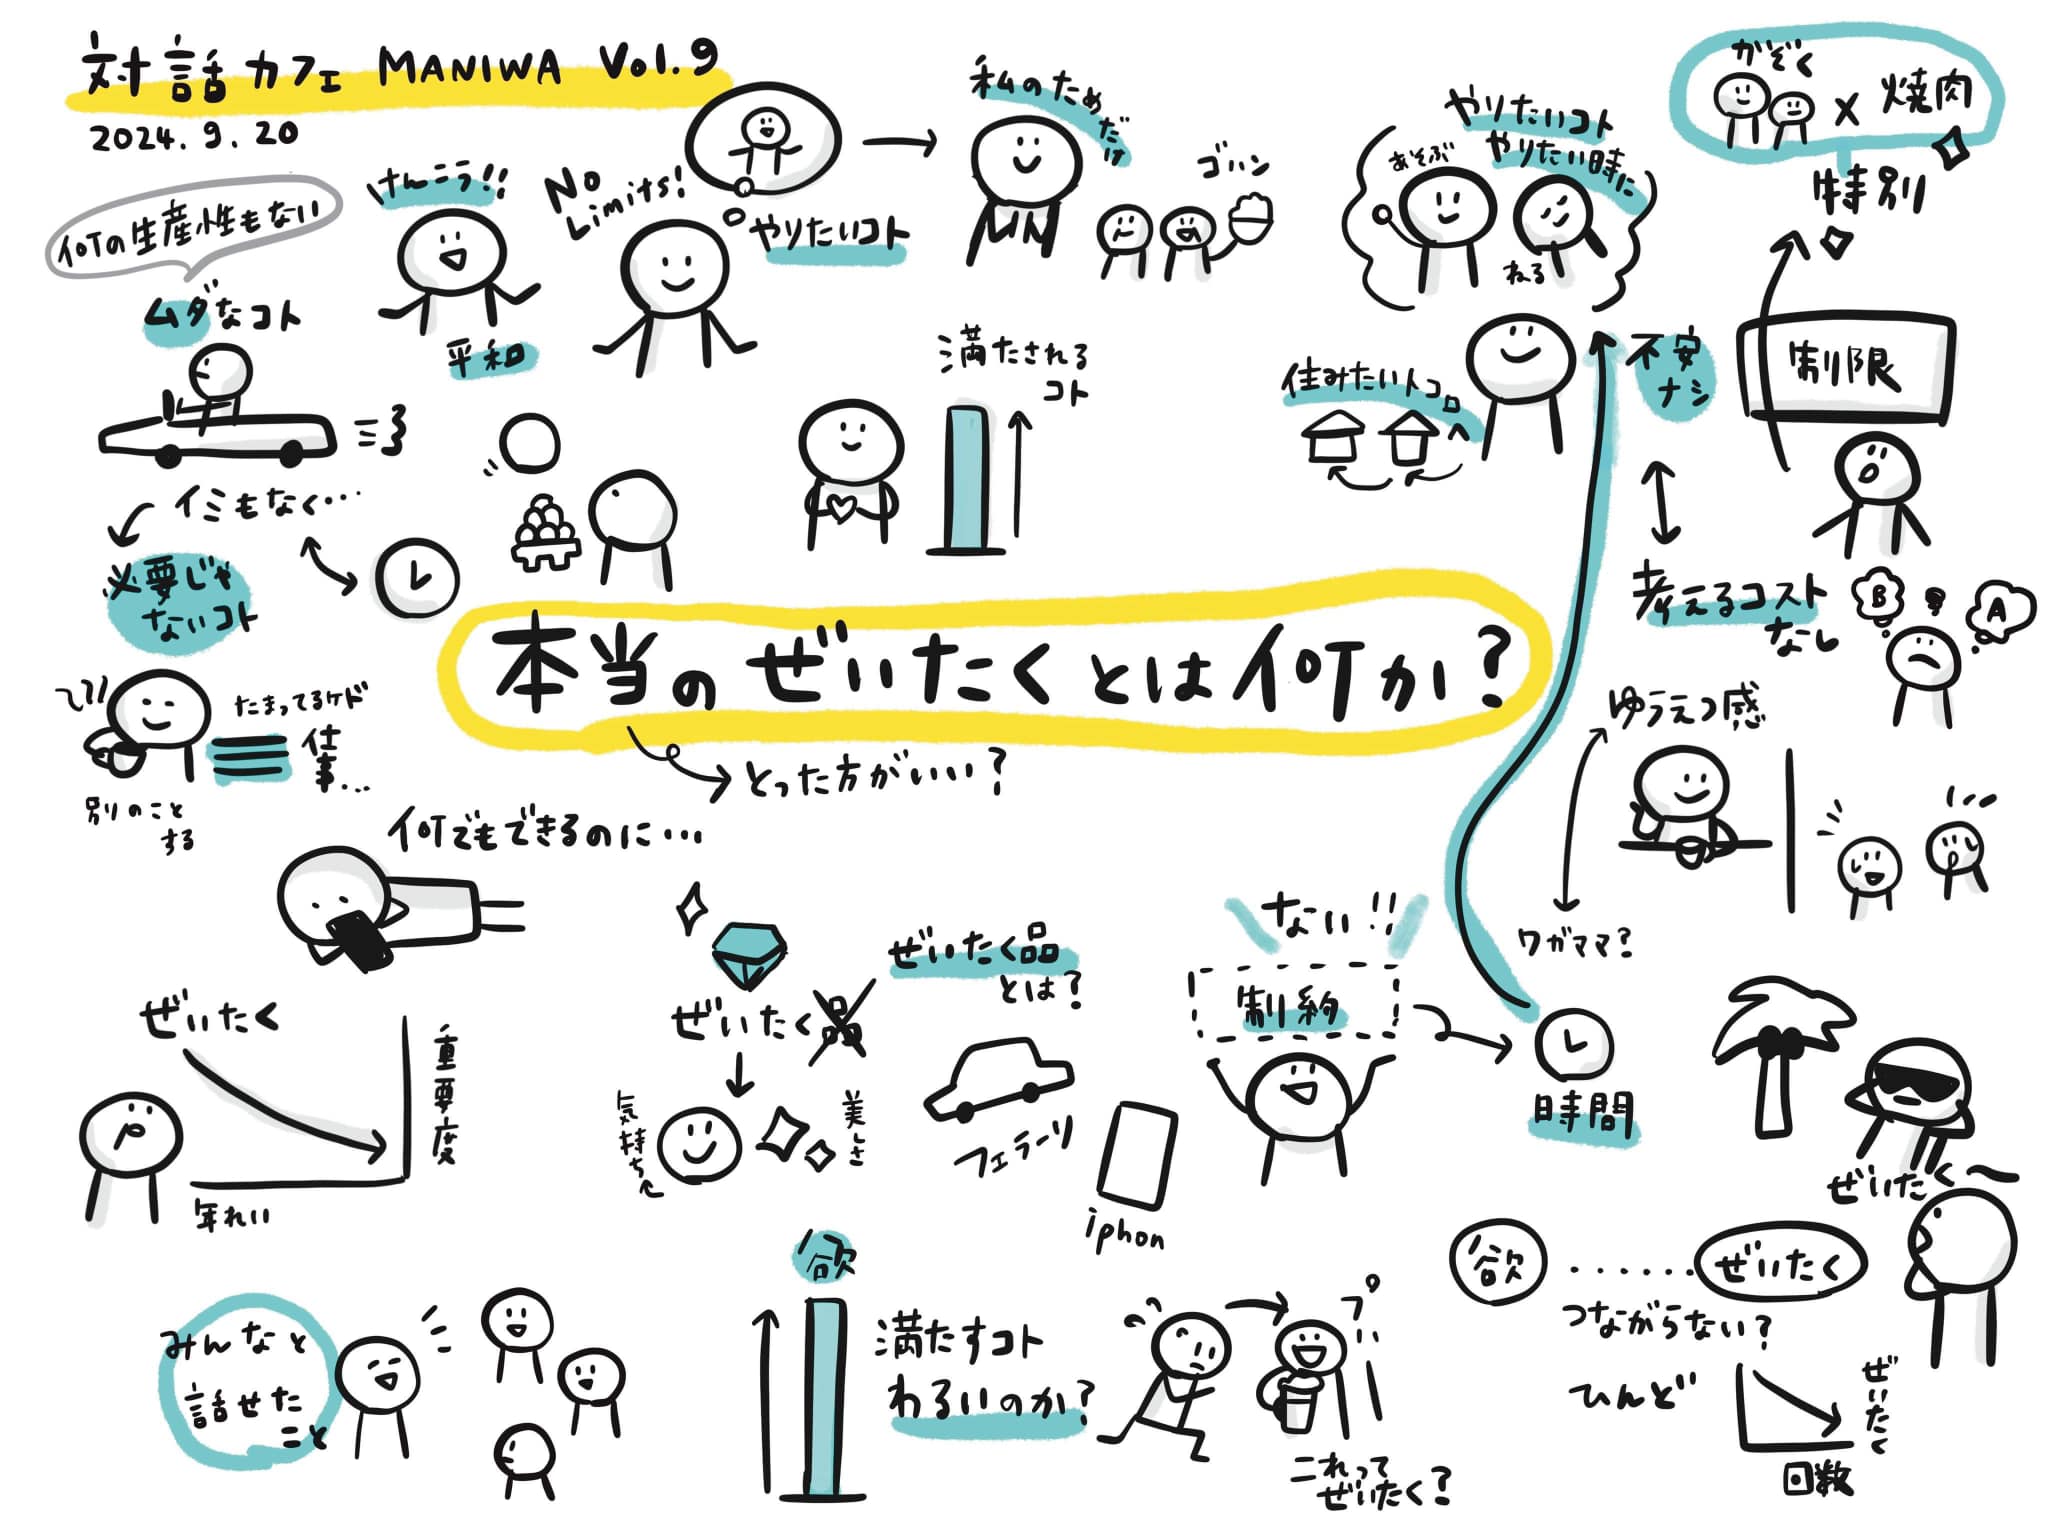 対話カフェ MANIWA Vol.9
2024.9.20
何の生産性もない
ムダなコト
イミもなく…
必要じゃ
ないコト
たまってるケド
仕事…
別のこと
する
けんこう!!
平和
No
Limits!
やりたいコト
私のためだけ
ゴハン
満たされる
コト
やりたいコト
やりたい時に
あそぶ
ねる
住みたいトコロ
かぞく
×
焼肉
特別
制限
不安
ナシ
考えるコスト
なし
B
A
本当のぜいたくとは何か?
とった方がいい?
ゆうえつ感
ワガママ?
何でもできるのに…
ぜいたく
重要度
年れい
ぜいたく品
気持ち
美さ
ぜいたく品
とは?
フェラーリ
iphon
ない!!
制約
時間
ぜいたく〜
みんなと
話せた
こと
欲
満たすコト
わるいのか?
プハー
これって
ぜいたく?
欲
......
ぜいたく
つながらない?
ひんど
ぜいたく
回数